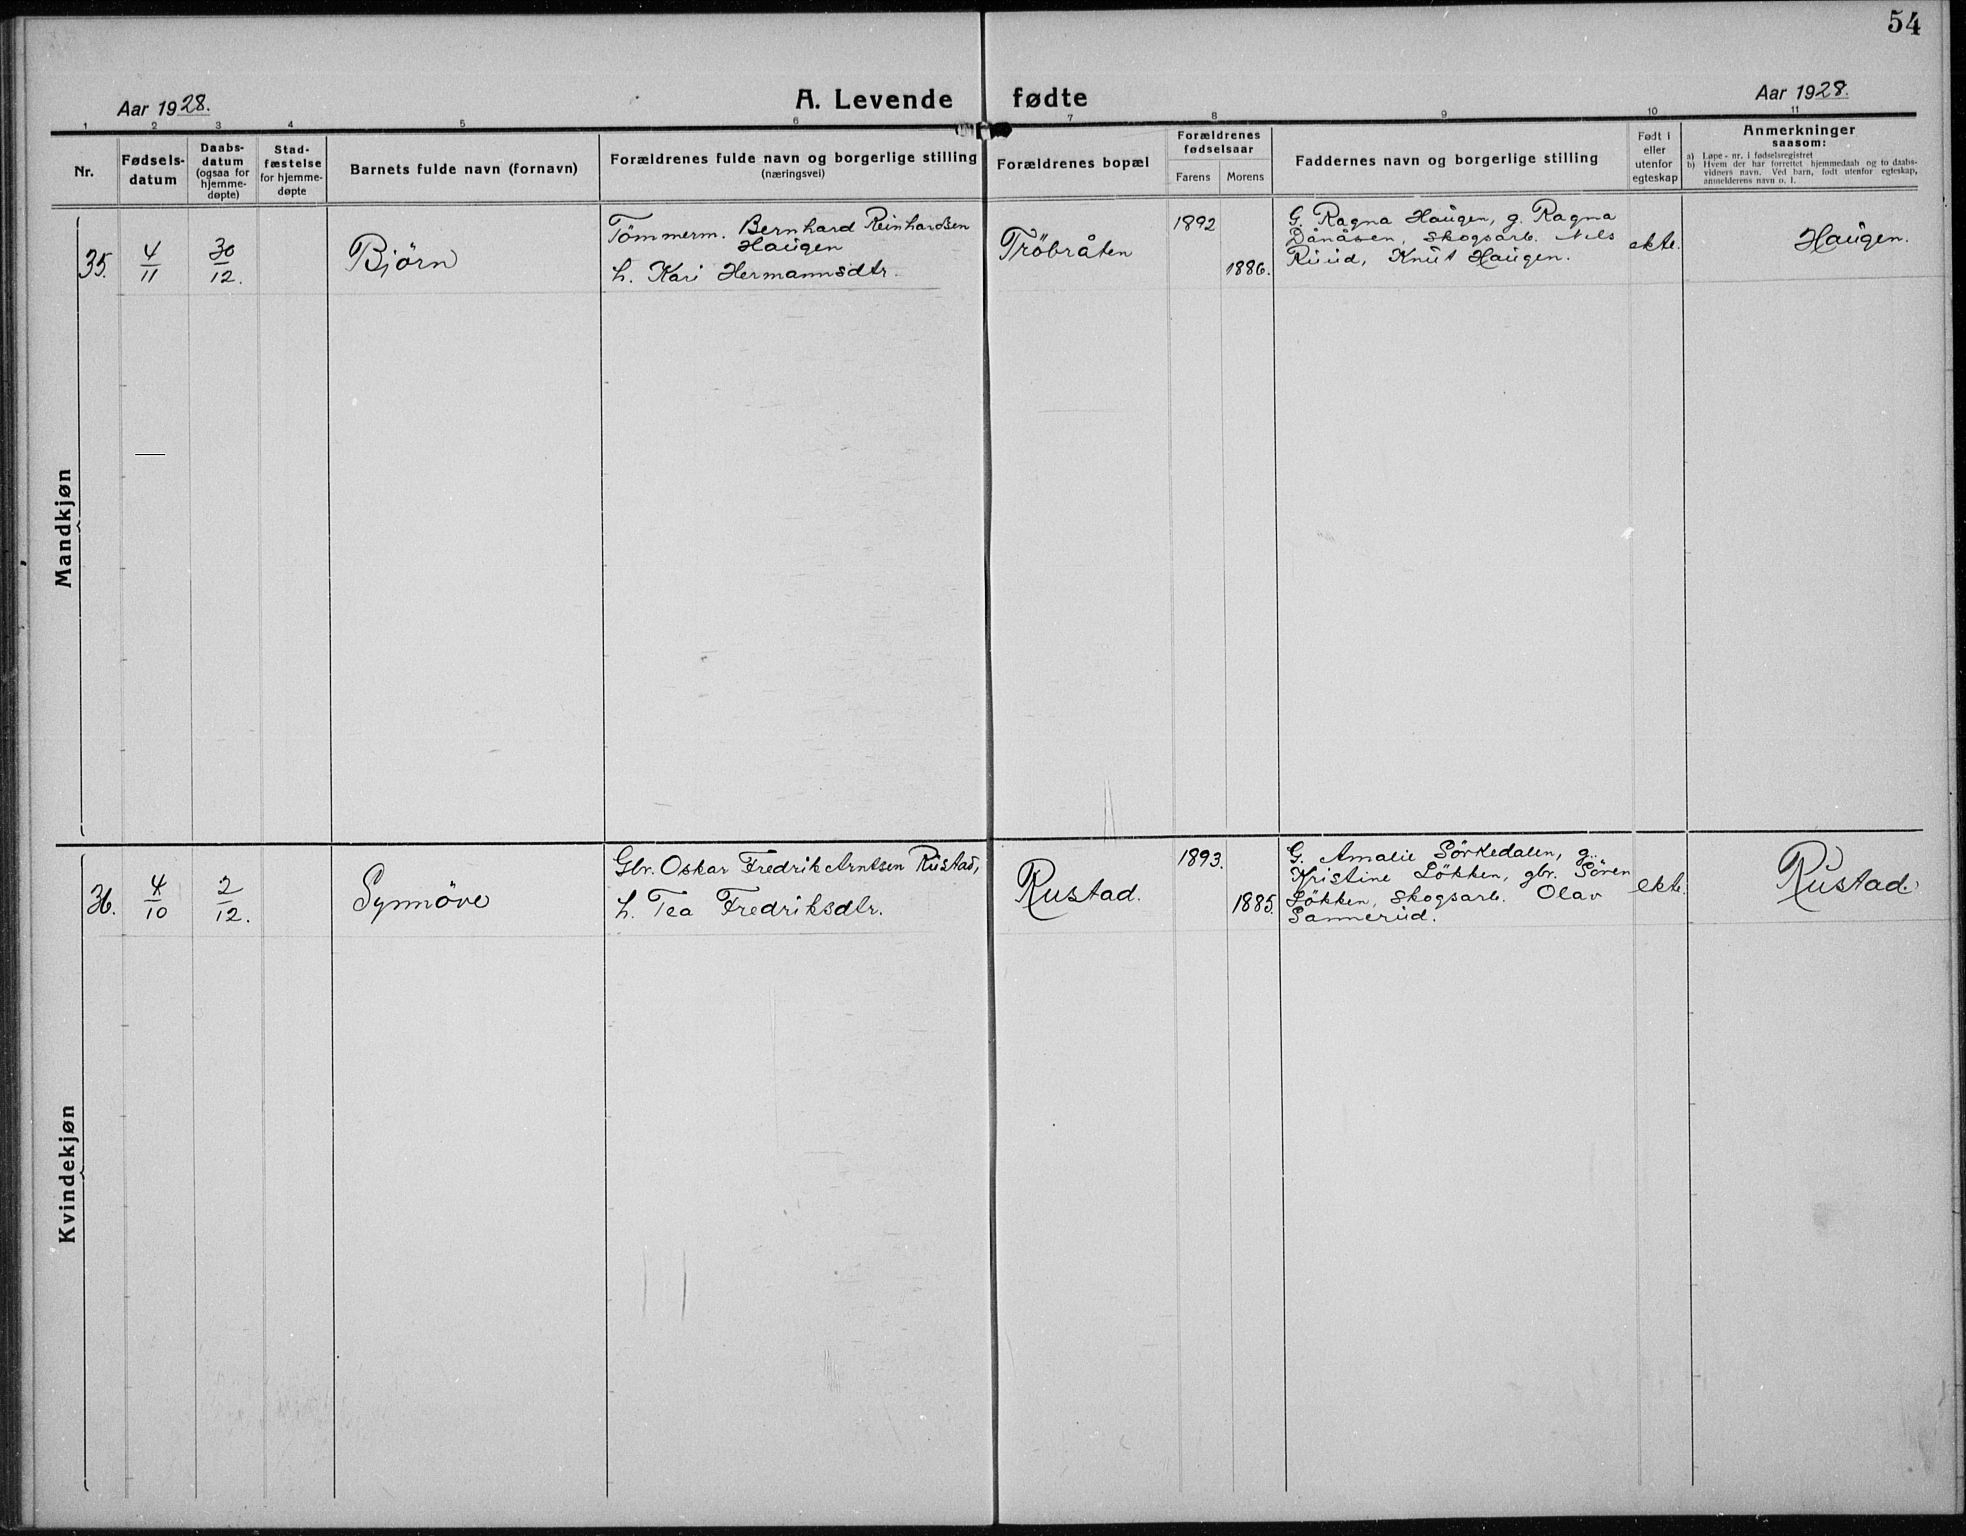 54
Aar 1928.
A. Levende fødte
Aar 1928.
1 2 3 4 5 6 7 8 9 10 11
Nr.
Fødsels-
datum
Daabs-
datum
(ogsaa for
hjemme-
døpte)
Stad-
fæstelse
for hjemme-
døpte
Barnets fulde navn (fornavn)
Forældrenes fulde navn og borgerlige stilling
(næringsvei)
Forældrenes bopæl
Forældrenes
fødselsaar
Farens Morens
Faddernes navn og borgerlige stilling
Født i
eller
utenfor
egteskap
Anmerkninger
saasom:
a) Løpe-nr. i fødselsregistret
b) Hvem der har forrettet hjemmedaab og to daabs-
vidners navn. Ved barn, født utenfor egteskap,
anmelderens navn o. l.
Mandkjøn
35.
4/11
30/12.
Bjørn
Tömmerm. Bernhard Reinhardsen
Haugen
h. Kari Hermannsdtr.
Tröbråten
1892
1886.
G. Ragna Haugen, g. Ragna
Dånåsen, skogsarb. Nils
Ruud, Knut Haugen.
ekte.
Haugen.
Kvindekjøn
36.
4/10
2/12.
Synnöve
Gbr. Oskar Fredrik Arntsen Rustad,
h. Tea Fredriksdtr.
Rustad.
1893.
1885.
G. Amalie Sörkedalen, g.
Kristine Lökken, gbr. Sören
Lökken, skogsarb. Olav
Sannerud.
ekte.
Rustad.